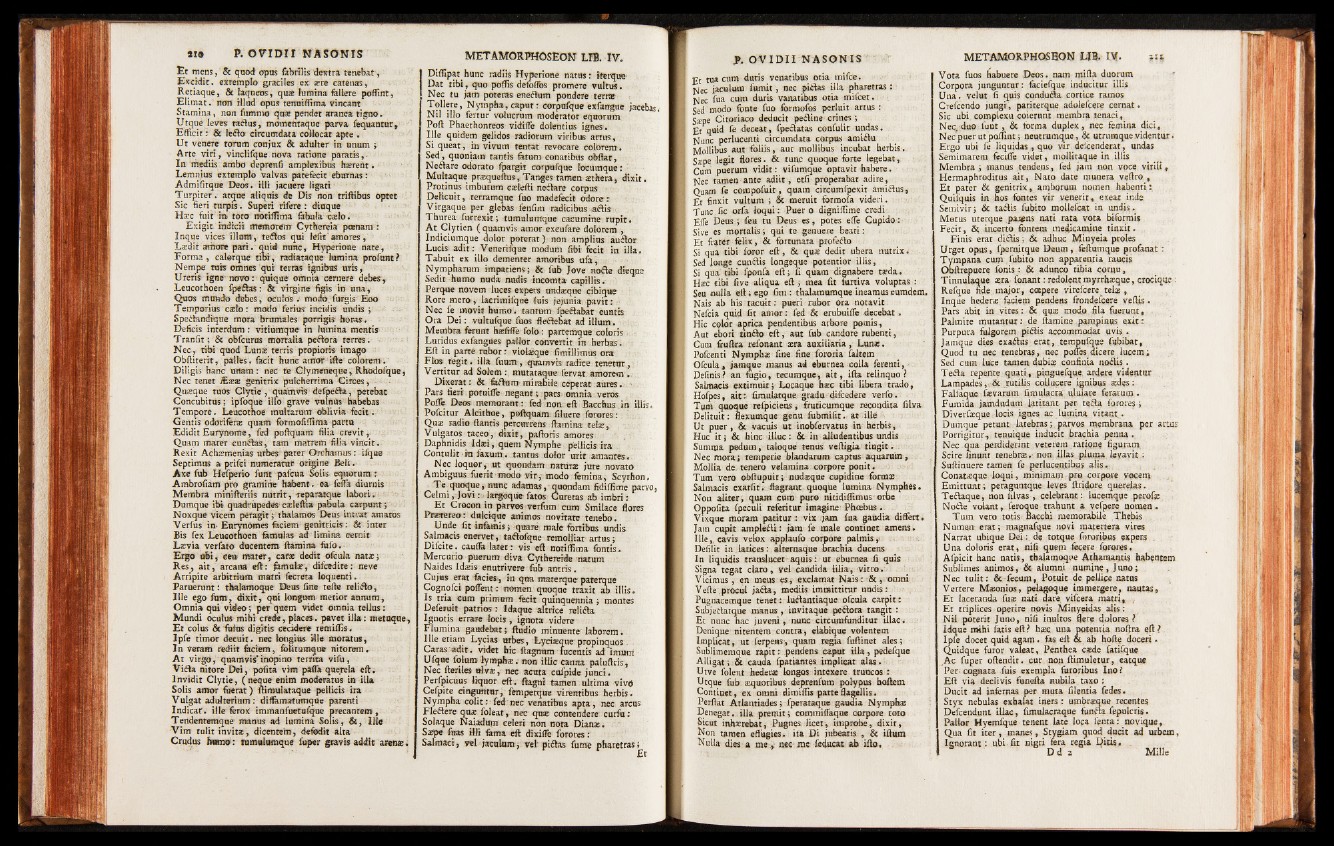 210 P. OVIDII NASONIS
Et mens, & quod opus fabrilis dextra tenebat,
Excidit. extemplo graciles ex ære catenas,
Retiaque, & laqueos, quæ lumina fallere possint,
Elimat. non illud opus tenuissima vincant
Stamina, non summo quæ pendet aranea tigno.
Utque leves tactus, momentaque parva sequantur,
Efficit: & lecto circumdata collocat apte.
Ut venere torum conjux & adulter in unum;
Arte viri, vinclisque nova ratione paratis,
In mediis ambo deprensi amplexibus hærent.
Lemnius extemplo valvas patefecit eburnas:
Admisitque Deos. illi jacuere ligati
Turpiter. atque aliquis de Dis non tristibus optet
Sic fieri turpis. Superi risere: diuque
Hæc fuit in toto notissima fabula cælo.
Exigit indicii memorem Cythereia pœnam:
Inque vices illum, tectos qui læsit amores,
Lædit amore pari. quid nunc, Hyperione nate,
Forma, calorque tibi, radiataque lumina prosunt?
Nempe tuis omnes qui terras ignibus uris,
Ureris igne novo: quique omnia cernere debes,
Leucothoen spectas: & virgine figis in una,
Quos mundo debes, oculos. modo surgis Eoo
Temporius cælo: modo serius incidis undis;
Spectandique mora brumales porrigis horas.
Deficis interdum: vitiumque in lumina mentis
Transit: & obscurus mortalia pectora terres.
Nec, tibi quod Lunæ terris propioris imago
Obstiterit, palles. facit hunc amor iste colorem.
Diligis hanc unam: nec te Clymeneque, Rhodosque,
Nec tenet Ææææ genitrix pulcherrima Circes,
Quæque tuos Clytie, quamvis despecta, petebat
Concubitus; ipsoque illo grave vulnus habebas
Tempore. Leucothoe multarum oblivia fecit.
Gentis odoriferæ quam formosissima partu
Edidit Eurynome, sed postquam filia crevit,
Quam mater cunctas, tam matrem filia vincit.
Rexit Achæmenias urbes pater Orchamus: isque
Septimus a prisci numeratur origine Beli.
Axe sub Hesperio sunt pascua Solis equorum:
Ambrosiam pro gramine habent. ea fessa diurnis
Membra ministeriis nutrit, reparatque labori.
Dumque ibi quadrupedes cælestia pabula carpunt;
Noxque vicem peragit; thalamos Deus intrat amatos
Versus in Eurynomes faciem genitricis: & inter
Bis sex Leucothoen famulas ad limina cernit
Lævia versato ducentem stamina fuso.
Ergo ubi, ceu mater, caræ dedit oscula natæ;
Res, ait, arcana est: famulæ, discedite: neve
Arripite arbitrium matri secreta loquenti.
Paruerunt: thalamoque Deus sine teste relicto,
Ille ego sum, dixit, qui longum metior annum,
Omnia qui video; per quem videt omnia tellus:
Mundi oculus mihi crede, places. pavet illa: metuque,
Et colus & fusus digitis cecidere remissis.
Ipse timor decuit. nec longius ille moratus,
In veram rediit faciem, solitumque nitorem.
At virgo, quamvis inopino territa visu,
Victa nitore Dei, posita vim passa querela est.
Invidit Clytie, (neque enim moderatus in illa
Solis amor fuerat) stimulataque pellicis ira
Vulgat adulterium: diffamatumque parenti
Indicat. ille ferox immansuetusque precantem,
Tendentemque manus ad lumina Solis, &, Ille
Vim tulit invitæ, dicentem, defodit alta
Crudus humo: tumulumque super gravis addit arenæ.
METAMORPHOSEON LIB. IV.
Dissipat hunc radiis Hyperione natus: iterque
Dat tibi, quo possis defossos promere vultus.
Nec tu jam poteras enectum pondere terræ
Tollere, Nympha, caput: corpusque exsangue jacebas.
Nil illo fertur volucrum moderator equorum
Post Phaethonteos vidisse dolentius ignes.
Ille quidem gelidos radiorum viribus artus,
Si queat, in vivum tentat revocare colorem.
Sed, quoniam tantis fatum conatibus obstat,
Nectare odorato spargit corpusque locumque:
Multaque præquestus, Tanges tamen æthera, dixit.
Protinus imbutum cælesti nectare corpus
Delicuit, terramque suo madefecit odore:
Virgaque per glebas sensim radicibus actis
Thurea surrexit; tumulumque cacumine rupit.
At Clytien (quamvis amor excusare dolorem,
Indiciumque dolor poterat) non amplius auctor
Lucis adit: Venerisque modum sibi fecit in illa.
Tabuit ex illo dementer amoribus usa,
Nympharum impatiens; & sub Jove nocte dieque
Sedit humo nuda nudis incomta capillis.
Perque novem luces expers undæque cibique
Rore mero, lacrimisque suis jejunia pavit:
Nec se movit humo. tantum spectabat euntis
Ora Dei: vultusque suos flectebat ad illum.
Membra ferunt hæsisse solo: partemque coloris
Luridus exsangues pallor convertit in herbas.
Est in parte rubor: violæque simillimus ora
Flos tegit. illa suum, quamvis radice tenetur,
Vertitur ad Solem: mutataque servat amorem.
Dixerat: & factum mirabile ceperat aures.
Pars fieri potuisse negant; pars omnia veros
Posse Deos memorant: sed non est Bacchus in illis.
Poscitur Alcithoe, postquam siluere sorores:
Quæ radio stantis percurrens stamina telæ,
Vulgatos taceo, dixit, pastoris amores
Daphnidis Idæi, quem Nymphe pellicis ira
Contulit in saxum. tantus dolor urit amantes.
Nec loquor, ut quondam naturæ jure novato
Ambiguus fuerit modo vir, modo femina, Scython.
Te quoque, nunc adamas, quondam fidissime parvo,
Celmi, Jovi: largoque satos Curetas ab imbri:
Et Crocon in parvos versum cum Smilace flores
Prætereo: dulcique animos novitate tenebo.
Unde sit infamis; quare male fortibus undis
Salmacis enervet, tactosque remolliat artus;
Discite. caussa latet: vis est notissima fontis.
Mercurio puerum diva Cythereide natum
Naides Idæis enutrivere sub antris.
Cujus erat facies, in qua materque paterque
Cognosci possent: nomen quoque traxit ab illis.
Is tria cum primum fecit quinquennia; montes
Deseruit patrios: Idaque altrice relicta
Ignotis errare locis, ignota videre
Flumina gaudebat; studio minuente laborem.
Ille etiam Lycias urbes, Lyciæque propinquos
Caras adit. videt hic stagnum lucentis ad imum
Usque solum lymphæ. non illic canna palustris,
Nec steriles ulvæ, nec acuta cuspide junci.
Perspicuus liquor est. stagni tamen ultima vivo
Cespite cinguntur, semperque virentibus herbis.
Nympha colit: sed nec venatibus apta, nec arcus
Flectere quæ soleat, nec quæ contendere cursu:
Solaque Naiadum celeri non nota Dianæ.
Sæpe suas illi fama est dixisse sorores:
Salmaci, vel jaculum, vel pictas sume pharetras;
Et
P. OVIDII NASONIS
Et tua cum duris venatibus otia misce.
Nec jaculum sumit, nec pictas illa pharetras:
Nec sua cum duris venatibus otia miscet.
Sed modo fonte suo formosos perluit artus:
Sæpe Citoriaco deducit pectine crines;
Et quid se deceat, spectatas consulit undas.
Nunc perlucenti circumdata corpus amictu
Mollibus aut foliis, aut mollibus incubat herbis.
Sæpe legit flores. & tunc quoque forte legebat,
Cum puerum vidit: visumque optavit habere.
Nec tamen ante adiit, etsi properabat adire,
Quam se composuit, quam circumspexit amictus,
Et finxit vultum; & meruit formosa videri.
Tunc sic orsa loqui: Puer o dignissime credi
Esse Deus; seu tu Deus es, potes esse Cupido:
Sive es mortalis; qui te genuere beati:
Et frater felix, & fortunata profecto
Si qua tibi soror est, & quæ dedit ubera nutrix.
Sed longe cunctis longeque potentior illis,
Si qua tibi sponsa est; si quam dignabere tæda.
Hæc tibi sive aliqua est, mea sit furtiva voluptas:
Seu nulla est; ego sim: thalamumque ineamus eumdem.
Nais ab his tacuit: pueri rubor ora notavit
Nescia quid sit amor: sed & erubuisse decebat.
Hic color aprica pendentibus arbore pomis,
Aut ebori tincto est, aut sub candore rubenti,
Cum frustra resonant æra auxiliaria, Lunæ.
Poscenti Nymphæ sine fine sororia saltem
Oscula, jamque manus ad eburnea colla ferenti,
Desinis? an fugio, tecumque, ait, ista relinquo?
Salmacis extimuit; Locaque hæc tibi libera trado,
Hospes, ait: simulatque gradu discedere verso.
Tum quoque respiciens, fruticumque recondita silva
Delituit: flexumque genu submisit. at ille
Ut puer, & vacuis ut inobservatus in herbis,
Huc it; & hinc illuc: & in alludentibus undis
Summa pedum, taloque tenus vestigia tingit.
Nec mora; temperie blandarum captus aquarum,
Mollia de tenero velamina corpore ponit.
Tum vero obstupuit; nudæque cupidine formæ
Salmacis exarsit. flagrant quoque lumina Nymphes.
Non aliter, quam cum puro nitidissimus orbe
Opposita speculi referitur imagine Phœbus.
Vixque moram patitur: vix jam sua gaudia differt.
Jam cupit amplecti: jam se male continet amens.
Ille, cavis velox applauso corpore palmis,
Desilit in latices: alternaque brachia ducens
In liquidis translucet aquis: ut eburnea si quis
Signa tegat claro, vel candida lilia, vitro.
Vicimus, en meus es, exclamat Nais: &, omni
Veste procul jacta, mediis immittitur undis:
Pugnacemque tenet: luctantiaque oscula carpit:
Subjectatque manus, invitaque pectora tangit:
Et nunc hac juveni, nunc circumfunditur illac.
Denique nitentem contra, elabique volentem
Implicat, ut serpens, quam regia sustinet ales;
Sublimemque rapit: pendens caput illa, pedesque
Alligat; & cauda spatiantes implicat alas.
Utve solent hederæ longos intexere truncos:
Utque sub æquoribus deprensum polypus hostem
Continet, ex omni dimissis parte flagellis.
Perstat Atlantiades; sperataque gaudia Nymphæ
Denegat. illa premit; commissaque corpore toto
Sicut inhærebat, Pugnes licet, improbe, dixit,
Non tamen effugies. ita Di jubeatis, & istum
Nulla dies a me, nec me seducat ab isto.
METAMORPHOSEON LIB. IV. 211
Vota suos habuere Deos. nam mista duorum
Corpora junguntur: faciesque inducitur illis
Una. velut si quis conducta cortice ramos
Crescendo jungi, pariterque adolescere cernat.
Sic ubi complexu coierunt membra tenaci,
Nec duo sunt, & forma duplex, nec femina dici,
Nec puer ut possint; neutrumque, & utrumque videntur.
Ergo ubi se liquidas, quo vir descenderat, undas
Semimarem fecisse videt, mollitaque in illis
Membra; manus tendens, sed jam non voce virili,
Hermaphroditus ait, Nato date munera vestro,
Et pater & genitrix, amborum nomen habenti:
Quisquis in hos fontes vir venerit, exeat inde
Semivir; & tactis subito mollescat in undis.
Motus uterque parens nati rata vota biformis
Fecit, & incerto fontem medicamine tinxit.
Finis erat dictis; & adhuc Minyeia proles
Urget opus, spernitque Deum, festumque profanat:
Tympana cum subito non apparentia raucis
Obstrepuere sonis: & adunco tibia cornu,
Tinnulaque æra sonant: redolent myrrhæque, crocique:
Resque fide major, cœpere virescere telæ,
Inque hederæ faciem pendens frondescere vestis.
Pars abit in vites: & quæ modo fila fuerunt,
Palmite mutantur: de stamine pampinus exit:
Purpura fulgorem pictis accommodat uvis.
Jamque dies exactus erat, tempusque subibat,
Quod tu nec tenebras, nec posses dicere lucem;
Sed cum luce tamen dubiæ confinia noctis.
Tecta repente quati, pinguesque ardere videntur
Lampades, & rutilis collucere ignibus ædes:
Falsaque sævarum simulacra ululare ferarum.
Fumida jamdudum latitant per tecta sorores;
Diversæque locis ignes ac lumina vitant.
Dumque petunt latebras; parvos membrana per artus
Porrigitur, tenuique inducit brachia penna.
Nec qua perdiderint veterem ratione figuram
Scire sinunt tenebræ. non illas pluma levavit:
Sustinuere tamen se perlucentibus alis.
Conatæque loqui, minimam pro corpore vocem
Emittunt; peraguntque leves stridore querelas.
Tectaque, non silvas, celebrant: lucemque perosæ
Nocte volant, seroque trahunt a vespere nomen.
Tum vero totis Bacchi memorabile Thebis
Numen erat; magnasque novi matertera vires
Narrat ubique Dei: de totque sororibus expers
Una doloris erat, nisi quem fecere sorores.
Aspicit hanc natis, thalamoque Athamantis habentem
Sublimes animos, & alumni numine, Juno;
Nec tulit: & secum, Potuit de pellice natus
Vertere Mæonios, pelagoque immergere, nautas,
Et laceranda suæ nati dare viscera matri,
Et triplices operire novis Minyeidas alis:
Nil poterit Juno, nisi inultos flere dolores?
Idque mihi satis est? hæc una potentia nostra est?
Ipse docet quid agam. fas est & ab hoste doceri.
Quidque furor valeat, Penthea cæde satisque
Ac super ostendit. cur non stimuletur, eatque
Per cognata suis exempla furoribus Ino?
Est via declivis funesta nubila taxo:
Ducit ad infernas per muta silentia sedes.
Styx nebulas exhalat iners: umbræque recentes
Descendunt illac, simulacraque functa sepulcris.
Pallor Hyemsque tenent late loca senta: novique,
Qua sit iter, manes, Stygiam quod ducit ad urbem,
Ignorant: ubi sit nigri fera regia Ditis.
D d 2 Mille